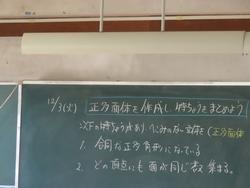 12/3(火) 正多面体を作成し、特ちょうをまとめよう
以下の特ちょうがあり へこみのない立体を(正多面体
1. 合同な正多角形になっている
2. どの頂点にも面が同じ数集まる。